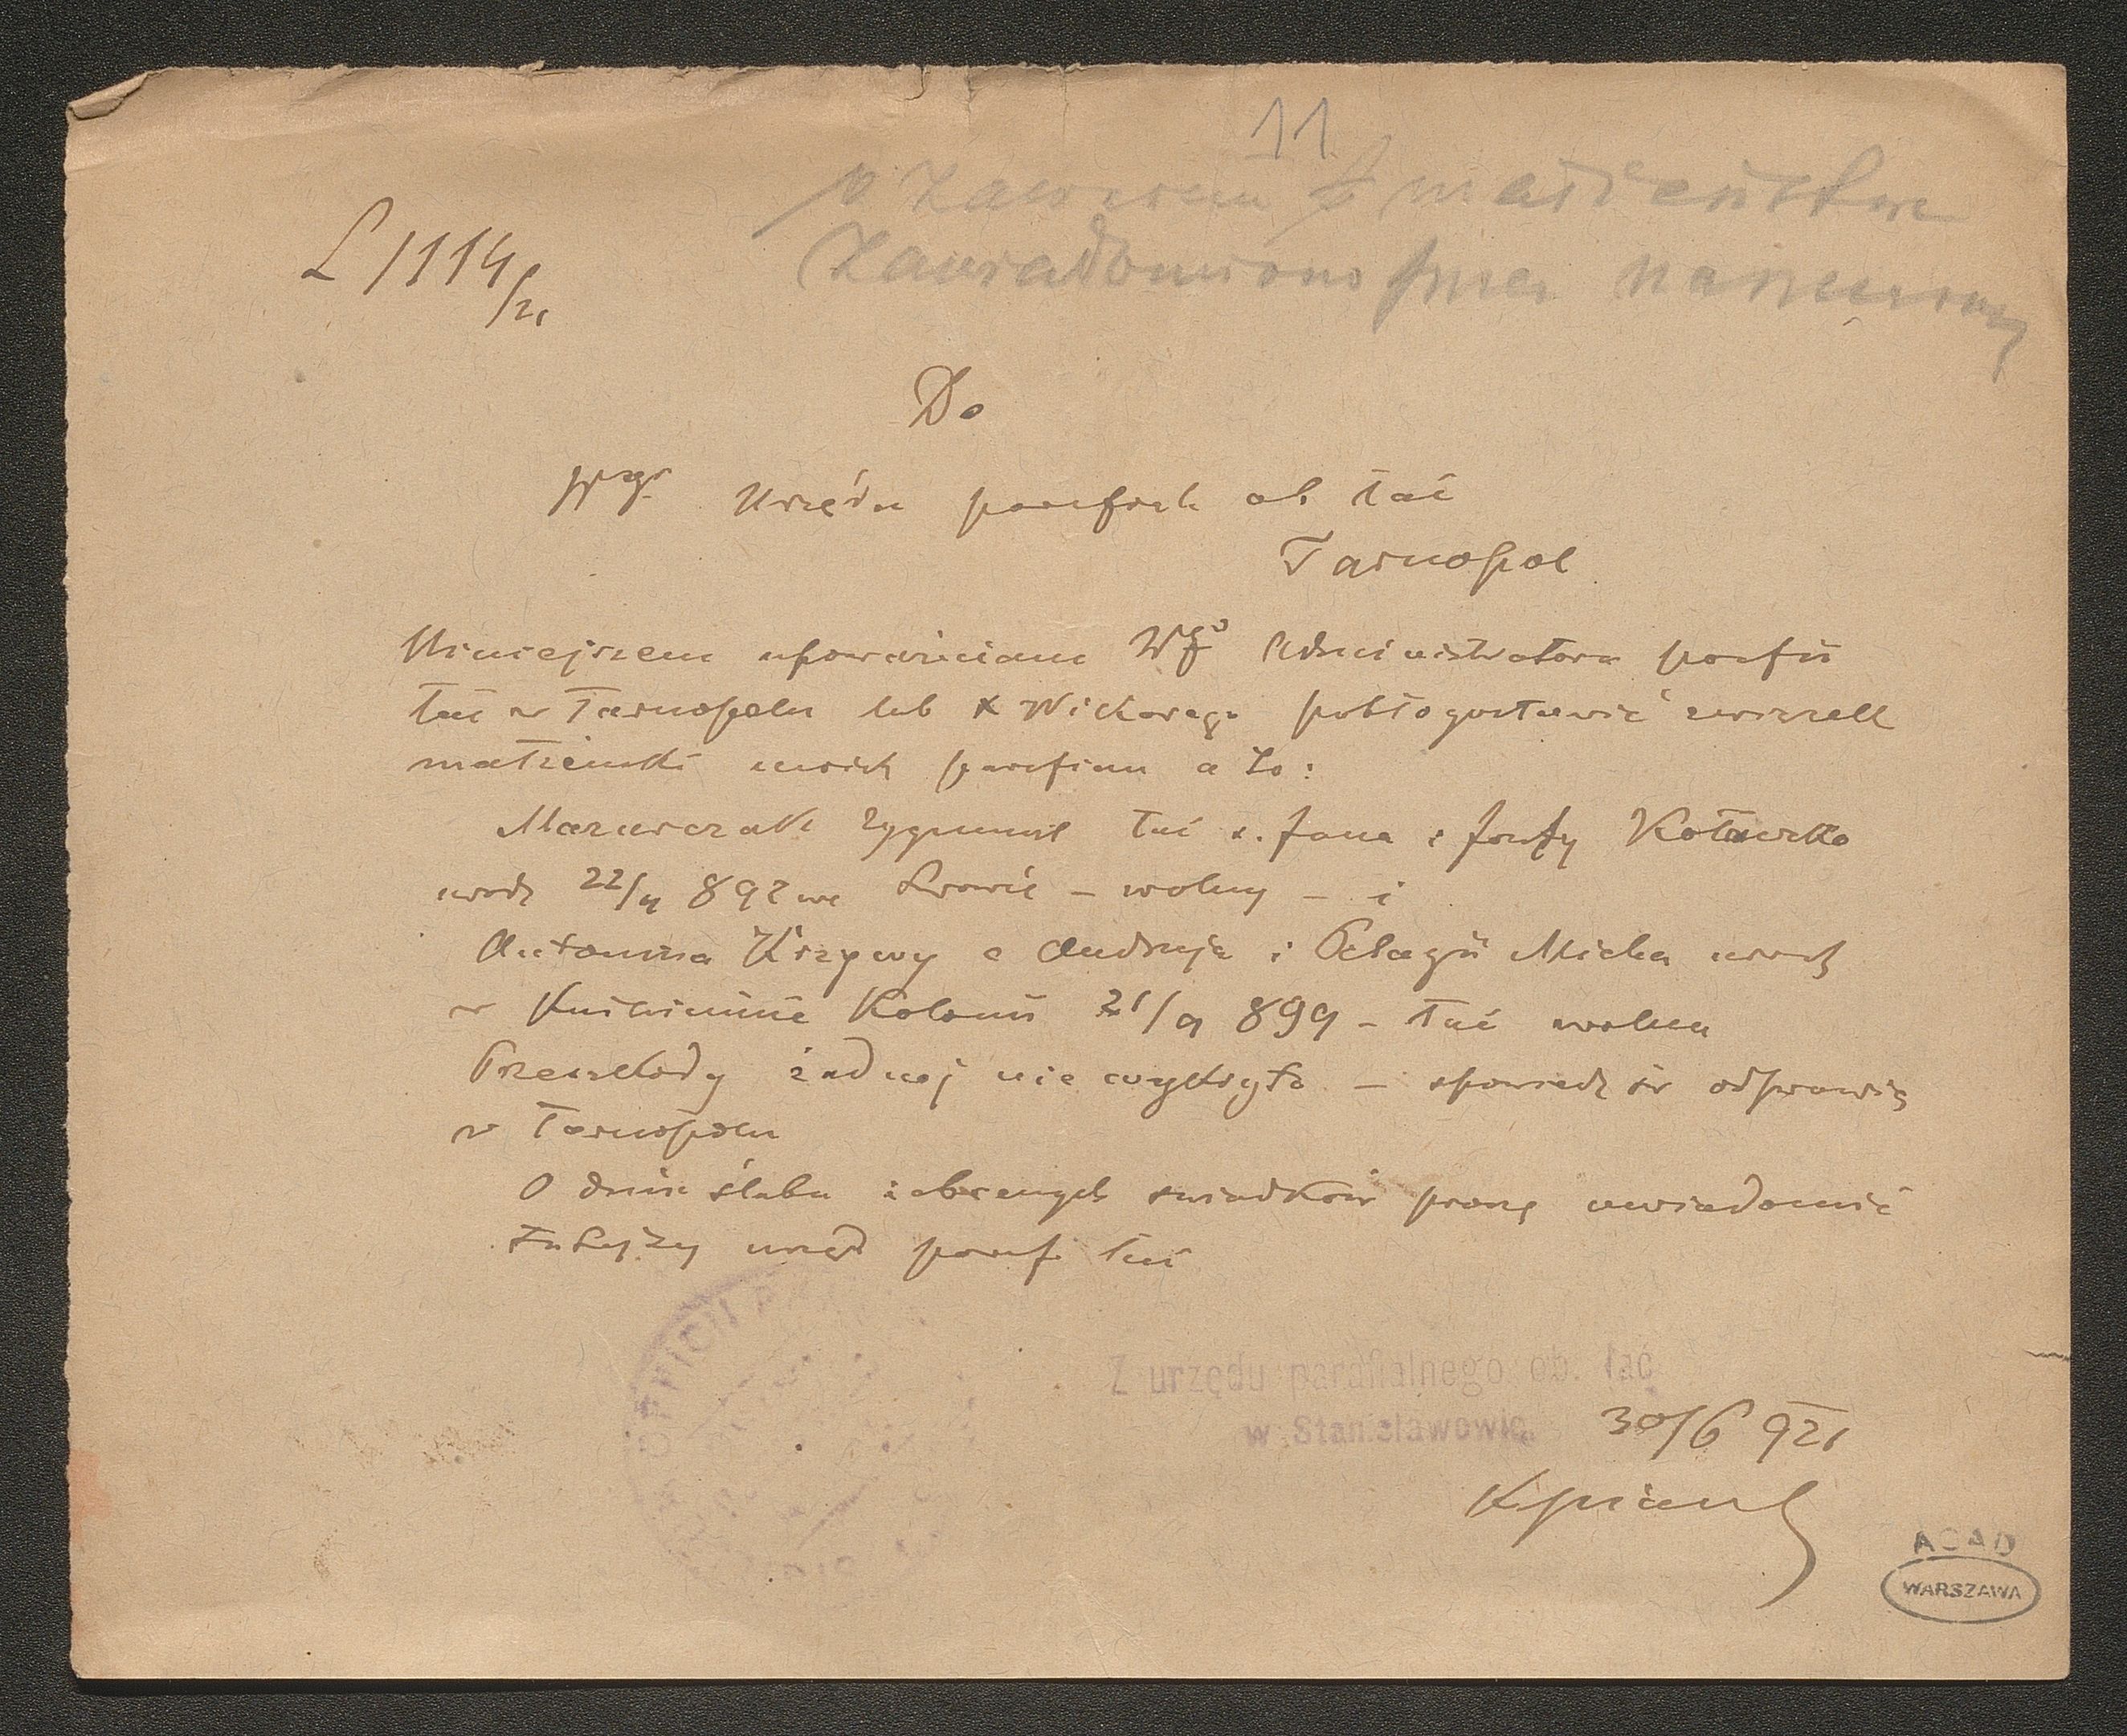 11
o zawarciu małżeństwa
Zawiadomiono przez narzeczoną
L 1114/21
Do
Urzędu parafial ob łać
Tarnopol
Niniejszem upoważniam Wgo Administratora parafii
łać w Tarnopolu lub X Wikarego pobłogosławić związek
małżeński moich parafian a to:
Mazurczak Zygmunt łać s. Jana i Józefy
urodz 22/4 892 we Lwowie – wolny – i
Antonina Krzywy c Andrzeja i Pelagii Micha urodz
w Knihininie Kolonii 21/9 899 – łać wolna
Przeszkody żadnej nie wykryto – spowiedź św odprawią
w Tarnopolu
O dniu ślubu i obranych świadków proszę uwiadomić
tutejszy urząd paraf łać
Z urzędu parafialnego ob. łać
w Stanisławowie 30/6 921
AGAD
WARSZAWA